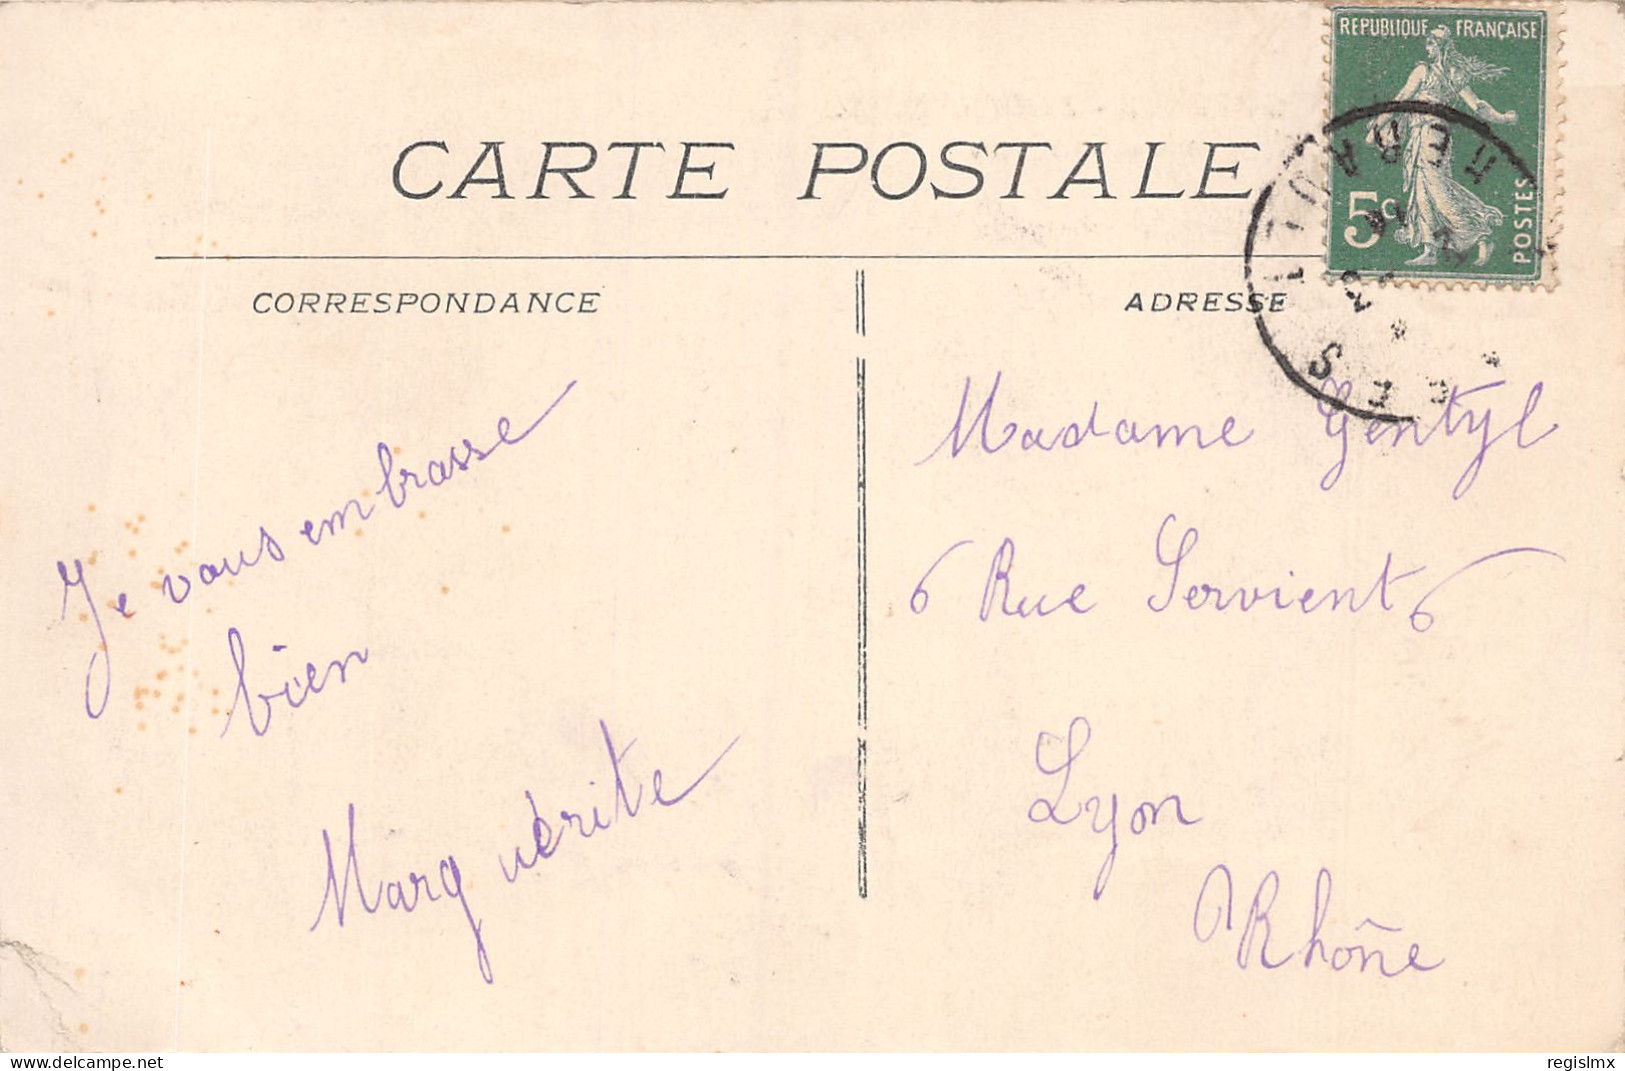 REPUBLIQUE FRANÇAISE
5c
POSTES
CARTE POSTALE
CORRESPONDANCE
ADRESSE
Je vous embrasse
bien
Marguérite
Madame Gentyl
6 Rue Servient 6
Lyon
Rhône
www.delcampe.net
regislmx